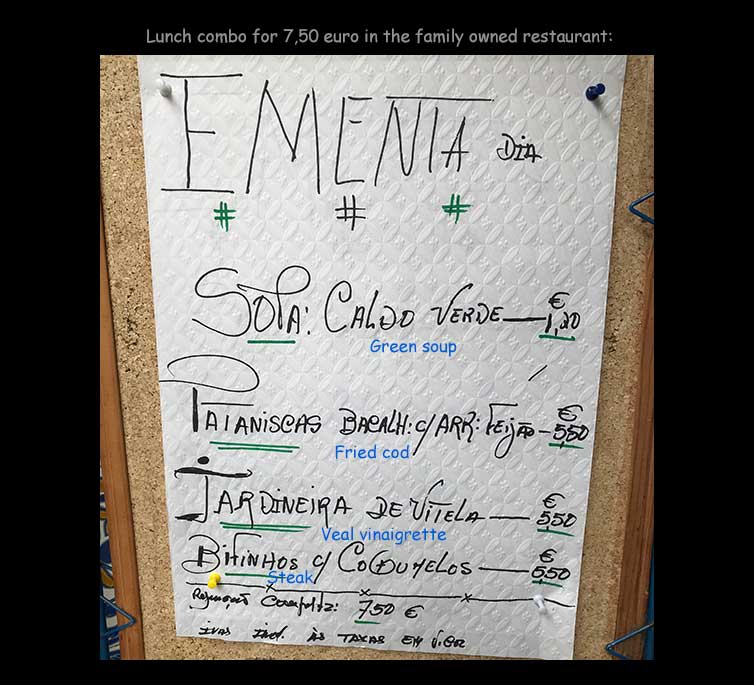 Lunch combo for 7,50 euro in the family owned restaurant:
EMENTA DIA
# # #
SOPA: CALDO VERDE — € 1,20
Green soup
PATANISCAS BACALH: c/ ARR: FEIJÃO - € 5,50
Fried cod
JARDINEIRA DE VITELA — € 5,50
Veal vinaigrette
BIFINHOS c/ COGUMELOS — € 5,50
Steak
Refeição Completa: 7,50 €
IVAS Incl. ÀS TAXAS EM VIGOR